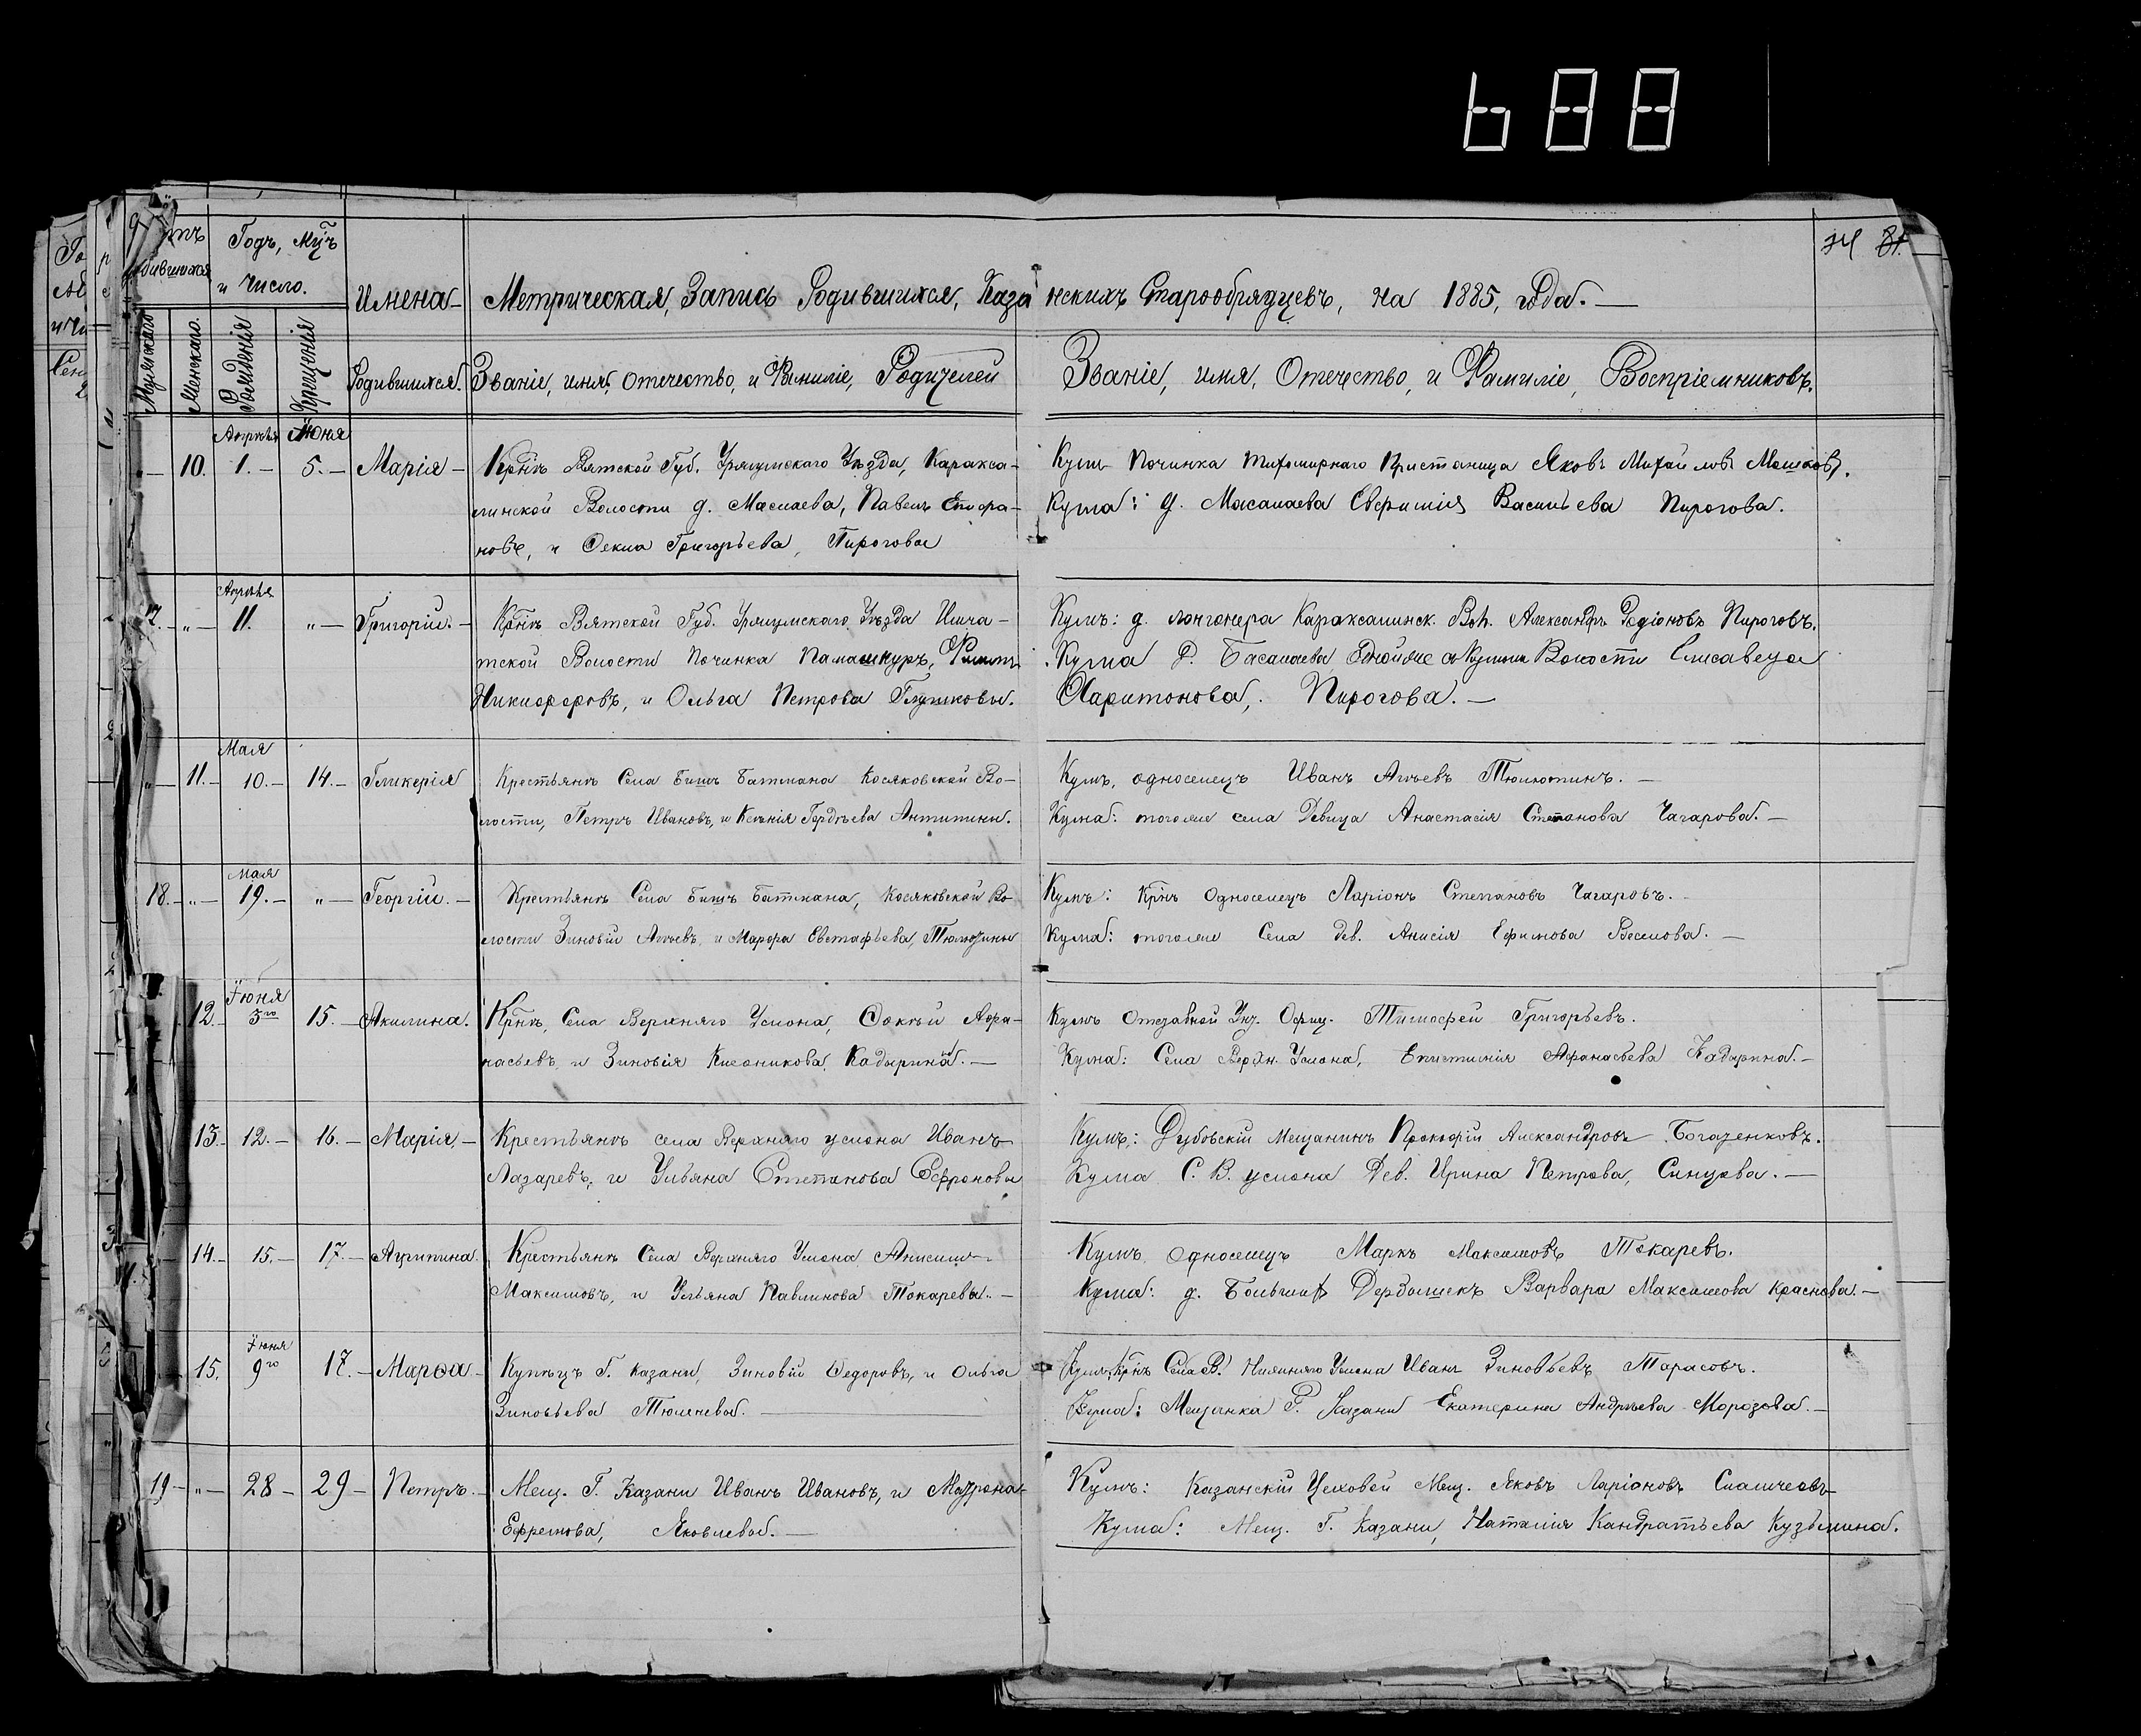 688
74 81.
Годъ, Мц̃ъ
и Число.
Имена
Метрическая, Запись Родившихся, Казанскихъ Старообрядцевъ, на 1885, года. —
Мужскаго
Женскаго.
Рожденія
Крещенія
Родившихся.
Званіе, имя, отечество, и Фамиліе, Родителей
Званіе, имя, Отечество, и Фамиліе, Воспріемниковъ.
Апрѣля Июня
— 10. 1. — 5. — Марія —
Кр̃нъ Вятской Губ. Уржумскаго Уѣзда, Каракса-
линской Волости д. Масалаева, Павелъ
новъ, и Ѳекла Григорьева, Пироговы
Кумъ Починка Тихомирнаго Пристаница Яковъ Михайловъ Машковъ.
Кума: д. Масалаева Евфимія Васильева Пирогова.
Апрѣля
17. — „ — 11. „ — Григорій. —
Кр̃нъ Вятской Губ. Уржумскаго Уѣзда Илча-
тской Волости Починка Памашнуръ, Филипъ
Никифоровъ, и Ольга Петрова Глушковы.
Кумъ: д. Караксалинск. Вол. Александръ Родіоновъ Пироговъ.
Кума Д. Басалаева Волости Елисавета
Харитонова, Пирогова. —
Мая
„ — 11. — 10. — 14. — Гликерія
Крестьянъ Села Бишъ Батмана Косяковской Во-
лости, Петръ Ивановъ, и Ксенія Гордѣева Антипины.
Кумъ, односелецъ Иванъ Агѣевъ Тюлютинъ. —
Кума: тогоже села Дѣвица Анастасія Степанова Чагарова. —
Мая
18. — „ — 19. — „ — Георгій. —
Крестьянъ Села Бишъ Батмана, Косяковской Во
лости Зиновій Агѣевъ, и Марѳа Евстафьева, Тюлютины
Кумъ: Кр̃нъ Односелецъ Ларіонъ Степановъ Чагаровъ.
Кума: тогоже Села дев. Анисія Ефимова Веселова. —
Іюня
12. 5го 15. — Акилина.
Кр̃нъ, Села Верхняго Услона, Фокѣй Афа-
насьевъ, и Зиновія Кадырина. —
Кумъ Отставной Унт. Офиц. Тимофей Григорьевъ.
Кума: Села Верхн. Услона, Епистимія Афанасьева Кадырина. —
13. — 12. — 16. — Марія, —
Крестьянъ села Верхняго услона Иванъ
Лазаревъ, и Ульяна Степанова Сафроновы
Кумъ,: Дубовскій мещанинъ Прокофій Александровъ Богатенковъ.
Кума С. В. услона Дев. Ирина Петрова, Синцова. —
14. — 15. — 17. — Агрипина.
Крестьянъ Села Верхняго Услона Анисимъ
Максимовъ, и Ульяна Павлинова Токаревы. —
Кумъ, односелецъ Маркъ Максимовъ Токаревъ.
Кума: д. Большихъ Дербышекъ Варвара Максимова Краснова. —
Іюня
15. 9го 17. — Марѳа —
Купецъ Г. Казани, Зиновій Ѳедоровъ, и Ольга
Зиновьева Тюленевы. —
Кумъ: Кр̃нъ Села В. Нижняго Услона Иванъ Зиновьевъ Тарасовъ.
Кума: Мещанка Г. Казани Екатерина Андрѣева Морозова. —
19 — „ — 28 — 29 — Петръ. —
Мещ. Г. Казани Иванъ Ивановъ, и Матрена
Ефремова, Яковлевы. —
Кумъ: Казанскій Цеховой Мещ. Яковъ Ларіоновъ
Кума: Мещ. Г. Казани, Наталія Кандратьева Кузьмина.